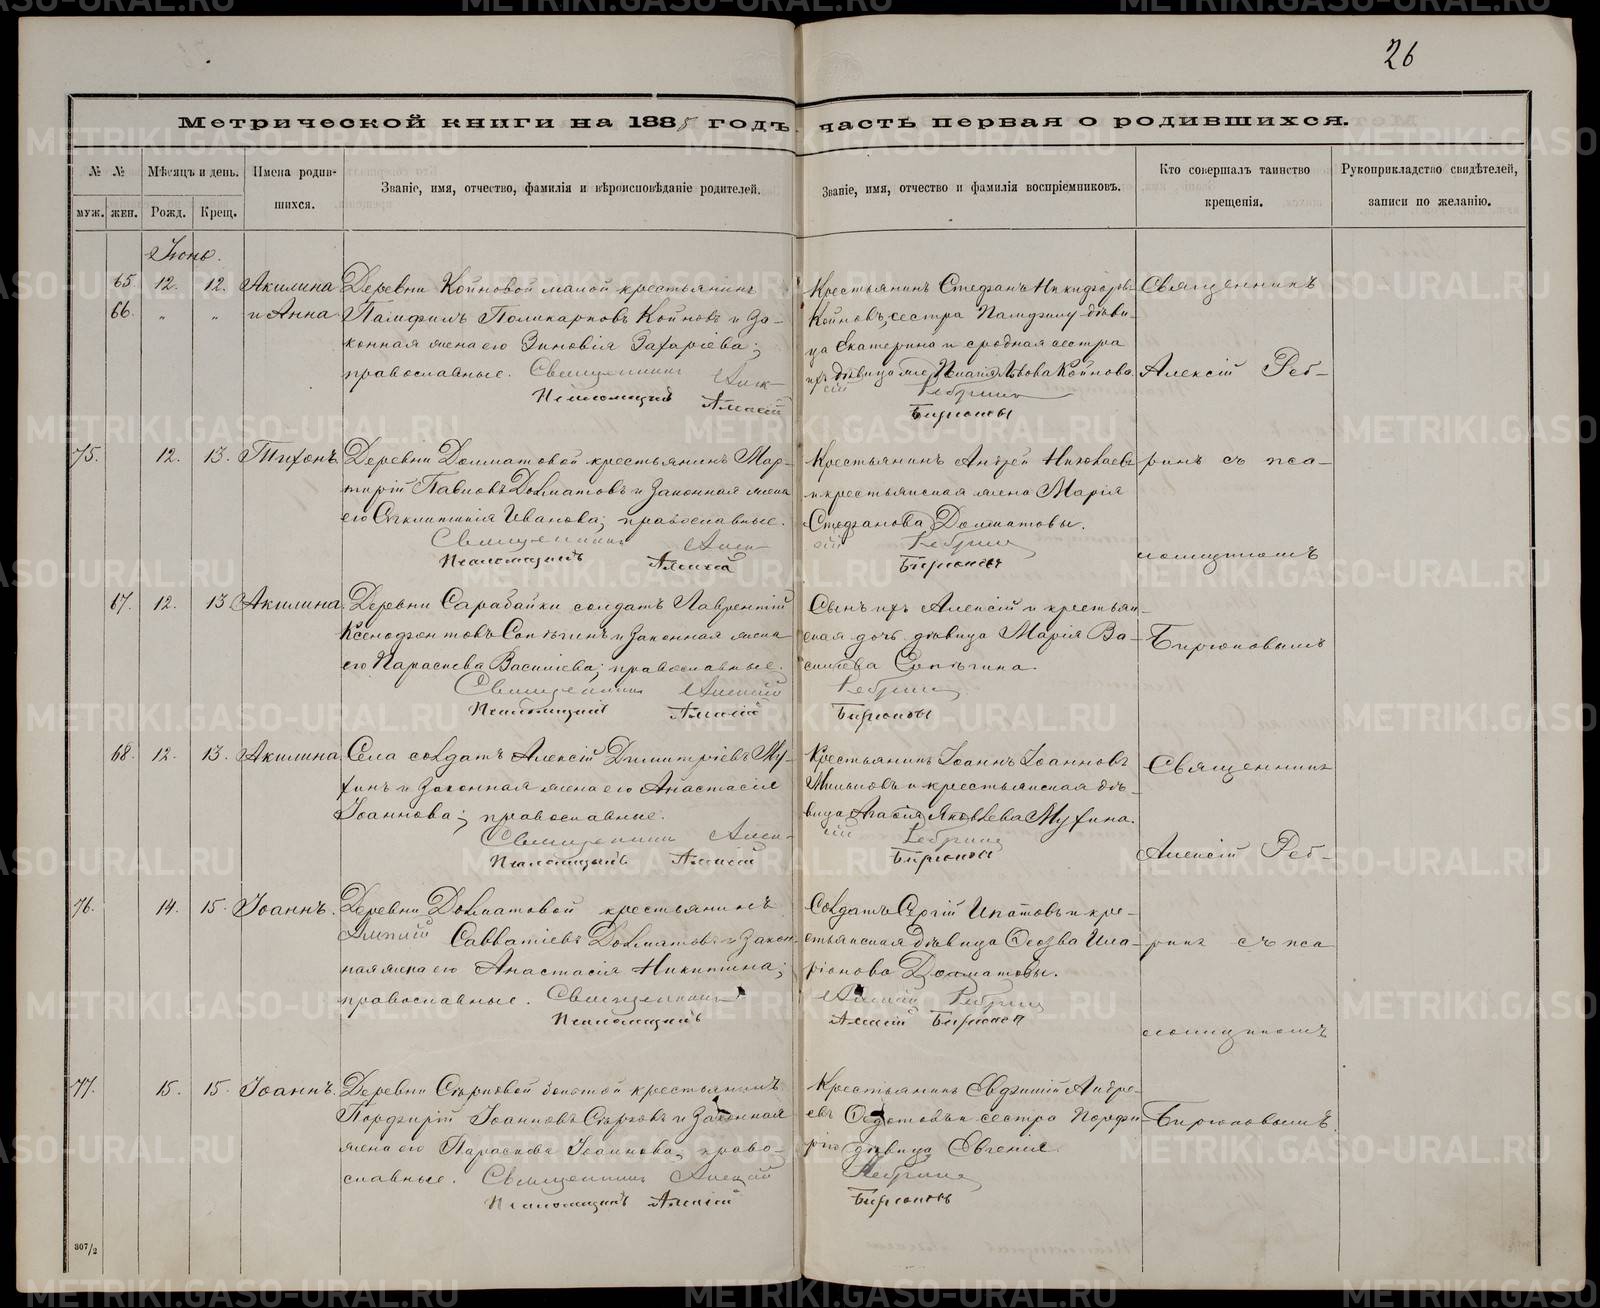 26
Метрической книги на 1885 годъ, часть первая о родившихся.
№ № Мѣсяцъ и день. Имена родив-шихся. Званіе, имя, отчество, фамилія и вѣроисповѣданіе родителей. Званіе, имя, отчество и фамилія воспріемниковъ. Кто совершалъ таинство крещенія. Рукоприкладство свидѣтелей, записи по желанію.
муж. жен. Рожд. Крещ.
Іюнь.
65. 12. 12. Акилина Деревни Койновой малой крестьянинъ
66. „ „ и Анна Памфилъ Поликарповъ Койновъ и за-
конная жена его Зиновія Захаріева;
православные. Священникъ
Псаломщикъ Алексій
Крестьянинъ Стефанъ Никифоровъ
Койновъ, сестра Памфилу дѣви-
ца Екатерина и сродная сестра
ихъ дѣвица Львова Койнова
Ребринъ
Бирюковъ
Священникъ
Алексій Реб-
75. 12. 13. Тихонъ. Деревни Долматовой крестьянинъ Мар-
тирій Павловъ Долматовъ и законная жена
его Иванова; православные.
Священникъ Алек-
Псаломщикъ Алексій
Крестьянинъ Андрей Николаевъ
и крестьянская жена Марія
Стефанова Долматовы.
сій Ребринъ
Бирюковъ
ринъ съ пса-
ломщикомъ
67. 12. 13. Акилина. Деревни Сарабайки солдатъ Лаврентій
Ксенофонтовъ Сопѣгинъ и законная жена
его Параскева Василіева; православные.
Священникъ Алексій
Псаломщикъ Алексій
Сынъ ихъ Алексій и крестьян-
ская дочь дѣвица Марія Ва-
силіева Сопѣгина.
Ребринъ
Бирюковъ
Бирюковымъ
68. 12. 13. Акилина. Села солдатъ Алексій Димитріевъ Му-
хинъ и законная жена его Анастасія
Іоаннова; православные.
Священникъ Алек-
Псаломщикъ Алексій
Крестьянинъ Іоаннъ Іоанновъ
и крестьянская дѣ-
вица Агафія Яковлева Мухина.
сій Ребринъ
Бирюковъ
Священникъ
Алексій Реб-
76. 14. 15. Іоаннъ. Деревни Долматовой крестьянинъ
Савватіевъ Долматовъ и закон-
ная жена его Анастасія Никитина;
православные. Священникъ
Псаломщикъ
Солдатъ Сергій Ипатовъ и кре-
стьянская дѣвица Ила-
ріонова Долматовы.
Алексій Ребринъ
Алексій Бирюковъ
ринъ съ пса
ломщикомъ
77. 15. 15. Іоаннъ. Деревни крестьянинъ
Порфирій Іоанновъ Сѣрковъ и законная
жена его Параскева Іоаннова; право-
славные. Священникъ Алексій
Псаломщикъ Алексій
Крестьянинъ Евфимій Андре-
евъ Ѳедотовъ и сестра Порфи-
рію дѣвица Евгенія.
Ребринъ
Бирюковъ
Бирюковымъ.
307/2
METRIKI.GASO-URAL.RU